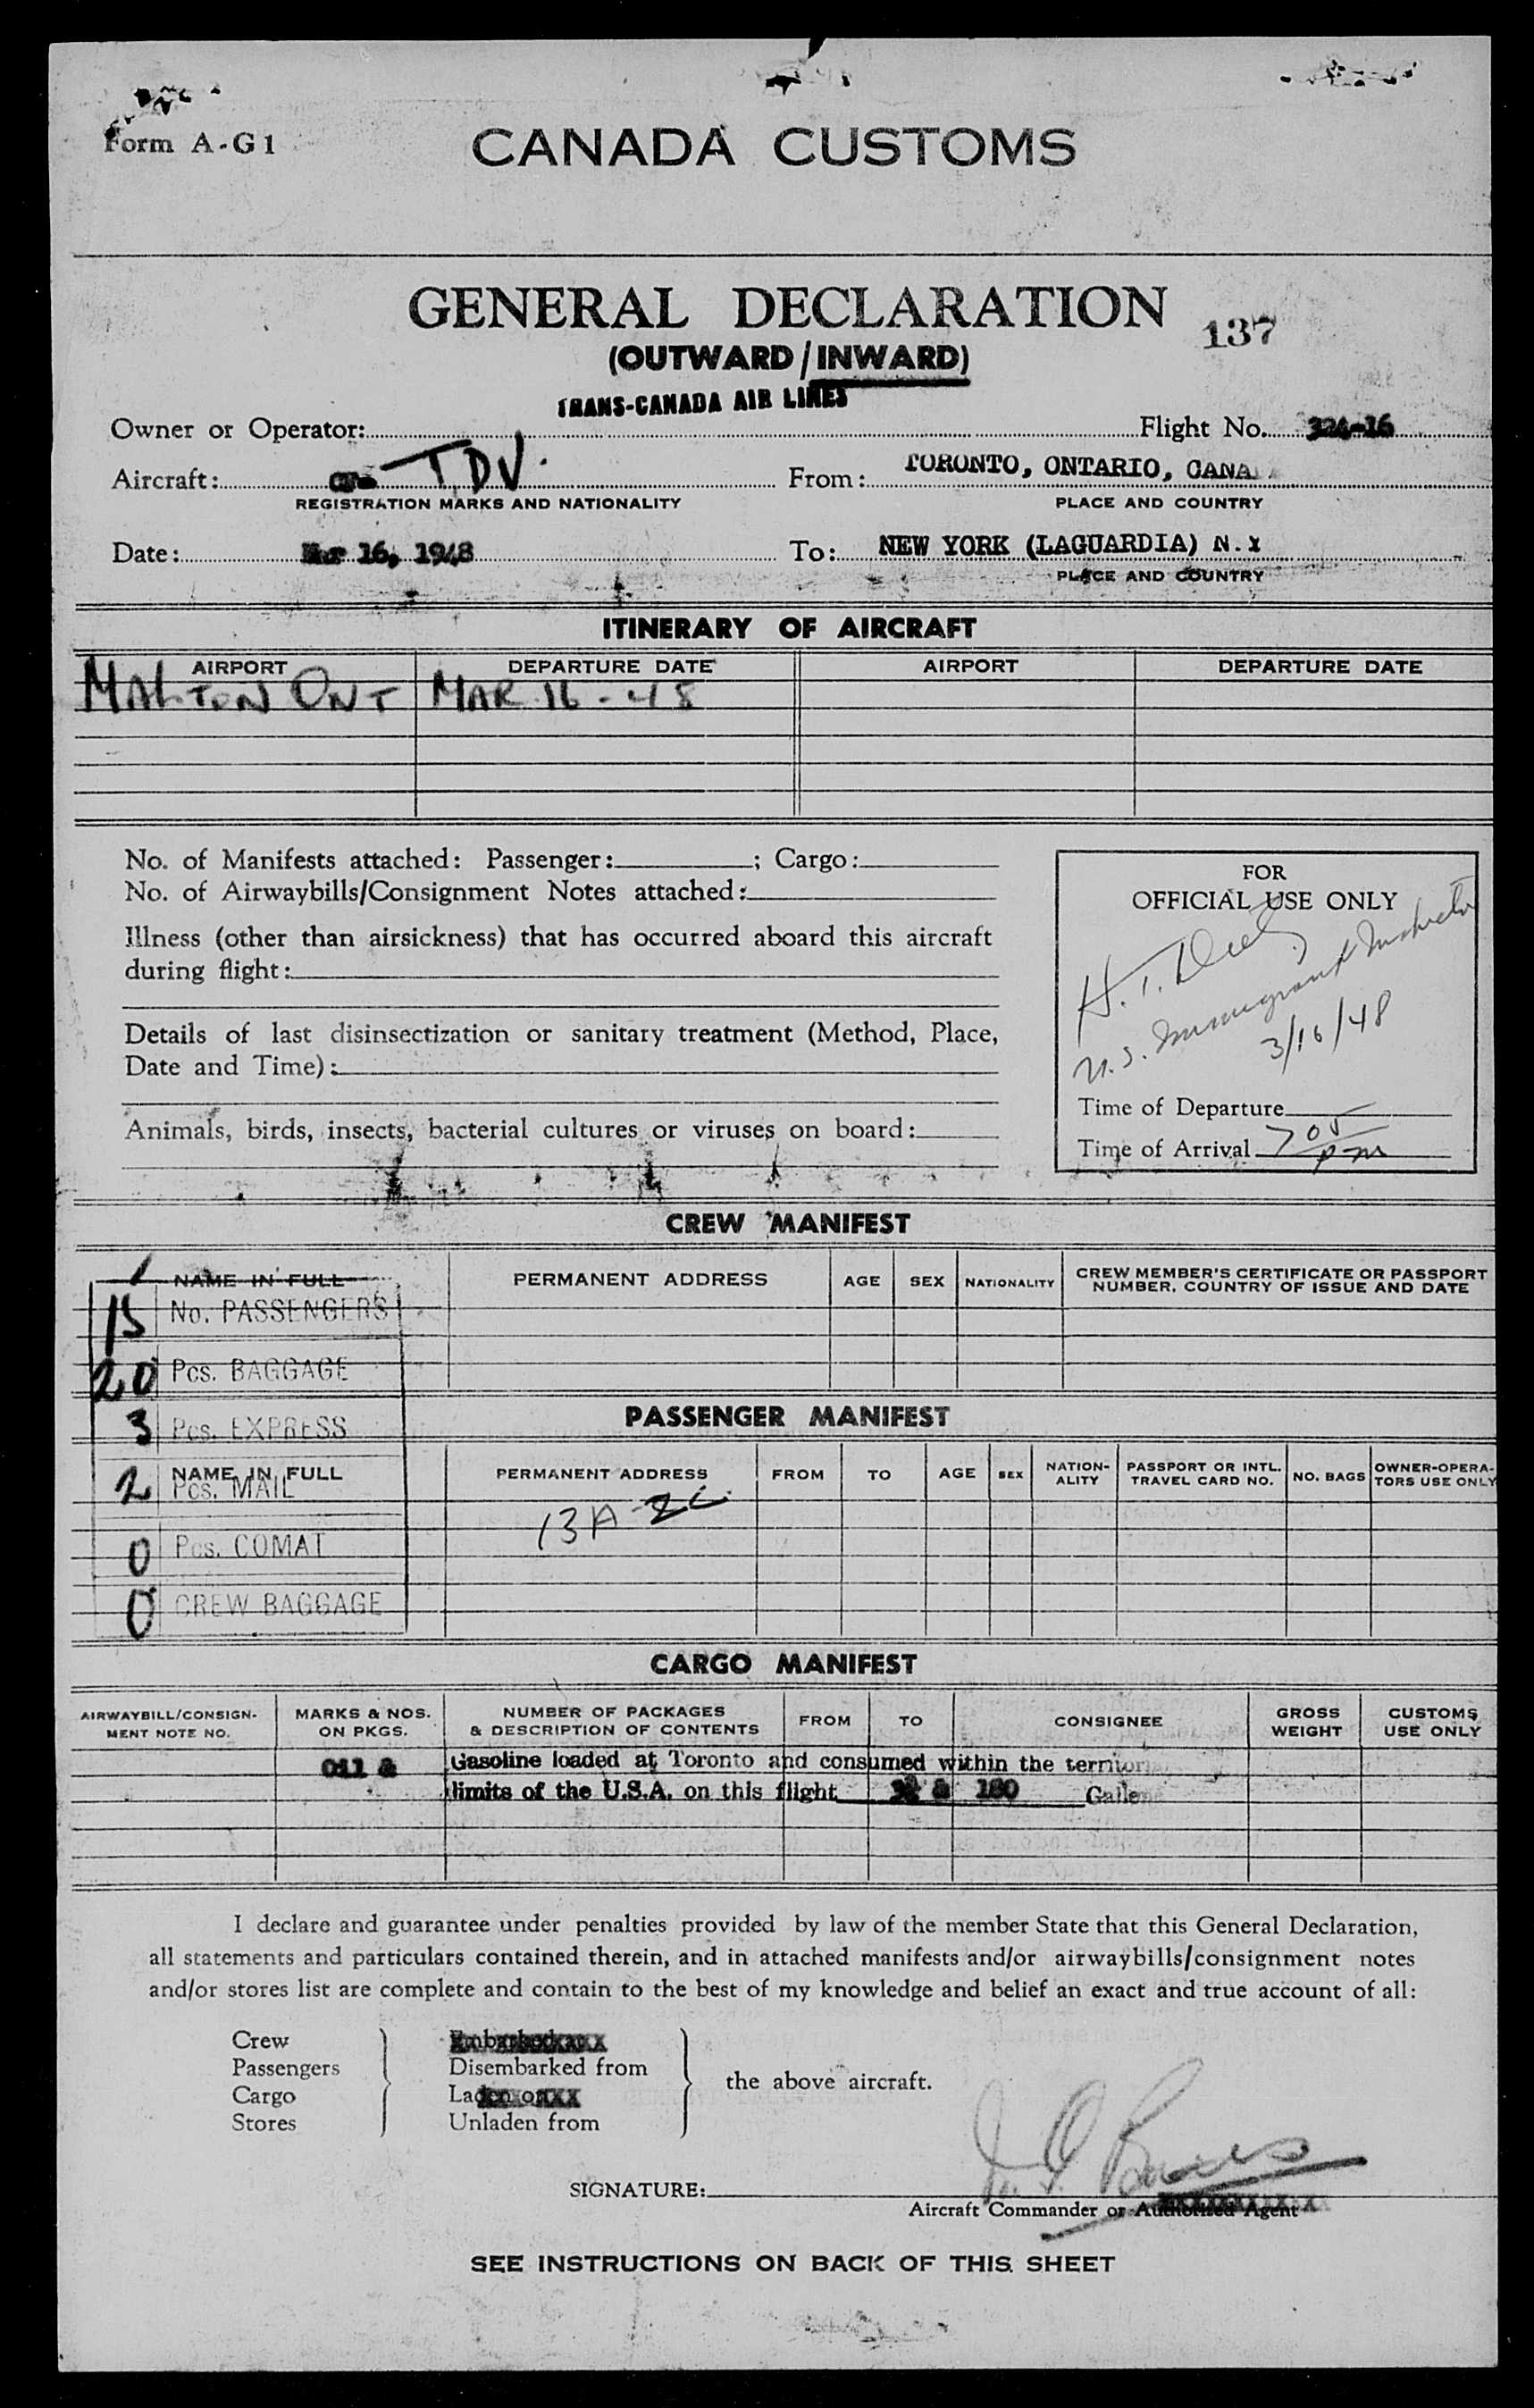 Form A-G1
CANADA CUSTOMS
GENERAL DECLARATION
137
(OUTWARD/INWARD)
TRANS-CANADA AIR LINES
Owner or Operator: Flight No. 324-16
Aircraft: TDV. From: TORONTO, ONTARIO, CANA
REGISTRATION MARKS AND NATIONALITY PLACE AND COUNTRY
Date: Mar 16, 1948 To: NEW YORK (LAGUARDIA) N.Y
PLACE AND COUNTRY
ITINERARY OF AIRCRAFT
AIRPORT DEPARTURE DATE AIRPORT DEPARTURE DATE
MALTON ONT MAR 16-48
No. of Manifests attached: Passenger: ; Cargo:
No. of Airwaybills/Consignment Notes attached:
Illness (other than airsickness) that has occurred aboard this aircraft
during flight:
Details of last disinsectization or sanitary treatment (Method, Place,
Date and Time):
Animals, birds, insects, bacterial cultures or viruses on board:
FOR
OFFICIAL USE ONLY
H. T.
U.S. Immigrant Inspector
3/16/48
Time of Departure
Time of Arrival 705 pm
CREW MANIFEST
NAME IN FULL PERMANENT ADDRESS AGE SEX NATIONALITY CREW MEMBER'S CERTIFICATE OR PASSPORT
NUMBER, COUNTRY OF ISSUE AND DATE
15 No. PASSENGERS
20 Pcs. BAGGAGE
PASSENGER MANIFEST
3 Pcs. EXPRESS
NAME IN FULL PERMANENT ADDRESS FROM TO AGE SEX NATION-
ALITY PASSPORT OR INTL.
TRAVEL CARD NO. NO. BAGS OWNER-OPERA-
TORS USE ONLY
2 Pcs. MAIL
13A-2C
0 Pcs. COMAT
0 CREW BAGGAGE
CARGO MANIFEST
AIRWAYBILL/CONSIGN-
MENT NOTE NO. MARKS & NOS.
ON PKGS. NUMBER OF PACKAGES
& DESCRIPTION OF CONTENTS FROM TO CONSIGNEE GROSS
WEIGHT CUSTOMS
USE ONLY
Oil & Gasoline loaded at Toronto and consumed within the territorial
limits of the U.S.A. on this flight & 180 Gallons
I declare and guarantee under penalties provided by law of the member State that this General Declaration,
all statements and particulars contained therein, and in attached manifests and/or airwaybills/consignment notes
and/or stores list are complete and contain to the best of my knowledge and belief an exact and true account of all:
Crew
Passengers Disembarked from
Cargo Laden on
Stores Unladen from
the above aircraft.
SIGNATURE:
Aircraft Commander or Authorized Agent
SEE INSTRUCTIONS ON BACK OF THIS SHEET